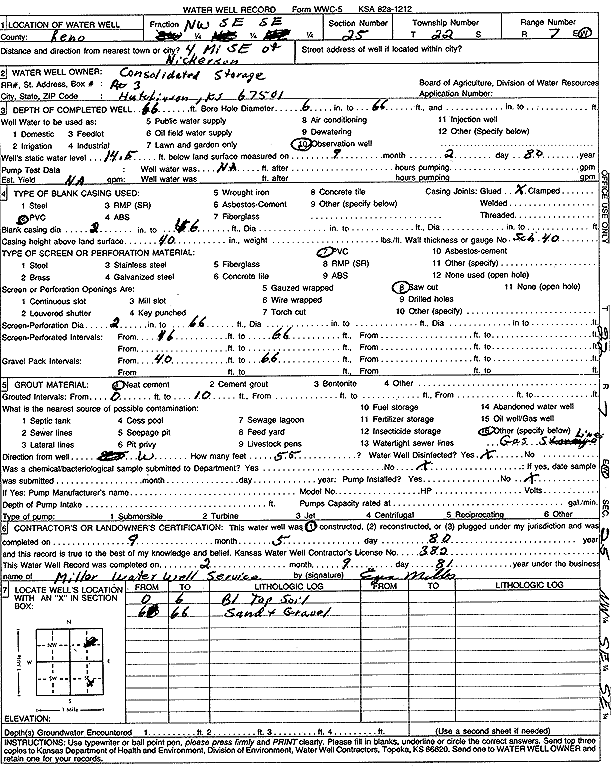 WATER WELL RECORD Form WWC-5 KSA 82a-1212
1 LOCATION OF WATER WELL Fraction NW SE SE Section Number Township Number Range Number
County: Reno ¼ ¼ ¼ 25 T 22 S R 7 E/W
Distance and direction from nearest town or city? 4 Mi SE of Nickerson Street address of well if located within city?
2 WATER WELL OWNER: Consolidated Storage
RR#, St. Address, Box # : RR 3 Board of Agriculture, Division of Water Resources
City, State, ZIP Code : Hutchinson, KS 67501 Application Number:
3 DEPTH OF COMPLETED WELL 66 ft. Bore Hole Diameter 6 in. to 66 ft., and in. to ft.
Well Water to be used as: 5 Public water supply 8 Air conditioning 11 Injection well
1 Domestic 3 Feedlot 6 Oil field water supply 9 Dewatering 12 Other (Specify below)
2 Irrigation 4 Industrial 7 Lawn and garden only 10 Observation well
Well's static water level 14.5 ft. below land surface measured on 9 month 2 day 80 year
Pump Test Data : Well water was NA ft. after hours pumping gpm
Est. Yield NA gpm: Well water was ft. after hours pumping gpm
4 TYPE OF BLANK CASING USED: 5 Wrought iron 8 Concrete tile Casing Joints: Glued X Clamped
1 Steel 3 RMP (SR) 6 Asbestos-Cement 9 Other (specify below) Welded
2 PVC 4 ABS 7 Fiberglass Threaded
Blank casing dia 2 in. to 46 ft., Dia in. to ft., Dia in. to ft.
Casing height above land surface 40 in., weight lbs./ft. Wall thickness or gauge No Sch 40
TYPE OF SCREEN OR PERFORATION MATERIAL: 7 PVC 10 Asbestos-cement
1 Steel 3 Stainless steel 5 Fiberglass 8 RMP (SR) 11 Other (specify)
2 Brass 4 Galvanized steel 6 Concrete tile 9 ABS 12 None used (open hole)
Screen or Perforation Openings Are: 5 Gauzed wrapped 8 Saw cut 11 None (open hole)
1 Continuous slot 3 Mill slot 6 Wire wrapped 9 Drilled holes
2 Louvered shutter 4 Key punched 7 Torch cut 10 Other (specify)
Screen-Perforation Dia 2 in. to 66 ft., Dia in. to ft., Dia in. to ft.
Screen-Perforated Intervals: From 46 ft. to 66 ft., From ft. to ft.
From ft. to ft., From ft. to ft.
Gravel Pack Intervals: From 40 ft. to 66 ft., From ft. to ft.
From ft. to ft., From ft. to ft.
5 GROUT MATERIAL: 1 Neat cement 2 Cement grout 3 Bentonite 4 Other
Grouted Intervals: From 0 ft. to 10 ft., From ft. to ft., From ft. to ft.
What is the nearest source of possible contamination: 10 Fuel storage 14 Abandoned water well
1 Septic tank 4 Cess pool 7 Sewage lagoon 11 Fertilizer storage 15 Oil well/Gas well
2 Sewer lines 5 Seepage pit 8 Feed yard 12 Insecticide storage 16 Other (specify below)
3 Lateral lines 6 Pit privy 9 Livestock pens 13 Watertight sewer lines Gas Storage
Direction from well W How many feet 55 ? Water Well Disinfected? Yes X No
Was a chemical/bacteriological sample submitted to Department? Yes No X : If yes, date sample
was submitted month day year: Pump Installed? Yes No X
If Yes: Pump Manufacturer's name Model No. HP Volts
Depth of Pump Intake ft. Pumps Capacity rated at gal./min.
Type of pump: 1 Submersible 2 Turbine 3 Jet 4 Centrifugal 5 Reciprocating 6 Other
6 CONTRACTOR'S OR LANDOWNER'S CERTIFICATION: This water well was (1) constructed, (2) reconstructed, or (3) plugged under my jurisdiction and was
completed on 9 month 5 day 80 year
and this record is true to the best of my knowledge and belief. Kansas Water Well Contractor's License No. 382
This Water Well Record was completed on 2 month 9 day 81 year under the business
name of Miller Water Well Service by (signature)
7 LOCATE WELL'S LOCATION WITH AN "X" IN SECTION BOX:
FROM TO LITHOLOGIC LOG FROM TO LITHOLOGIC LOG
0 6 Bl Top Soil
6 66 Sand & Gravel
N
NW NE
W E
SW SE
S
1 Mile
1 Mile
ELEVATION:
Depth(s) Groundwater Encountered 1 ft. 2 ft. 3 ft. 4 ft. (Use a second sheet if needed)
INSTRUCTIONS: Use typewriter or ball point pen, please press firmly and PRINT clearly. Please fill in blanks, underline or circle the correct answers. Send top three
copies to Kansas Department of Health and Environment, Division of Environment, Water Well Contractors, Topeka, KS 66620. Send one to WATER WELL OWNER and
retain one for your records.
OFFICE USE ONLY
T
22
R
7
E/W
SEC.
25
NW ¼
SE ¼
SE ¼